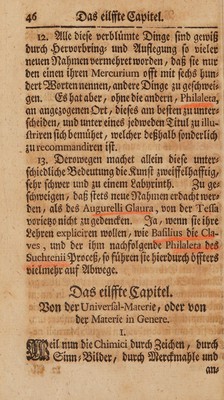 46 Das eilffte Capitel.
12. Alle diese verblümte Dinge sind gewiß
durch Hervorbring- und Auflegung so vieler
neuen Nahmen vermehret worden, daß sie nur
den einen ihren Mercurium offt mit sechs hun
dert Worten nennen, andere Dinge zu geschwei-
gen. Es hat aber, ohne die andern, Philaleta,
an angezogenen Ort, dieses am besten zu unter-
scheiden, und unter eines jedweden Titul zu illu-
striren sich bemühet, welcher deßhalb sonderlich
zu recommandiren ist.
13. Derowegen machet allein diese unter-
schiedliche Bedeutung die Kunst zweiffelhafftig,
sehr schwer und zu einem Labyrinth. Zu ge-
schweigen, daß stets neue Rahmen erdacht wer-
den, als des Augurelli Glaura, von der Tessa
vorietzo nicht zu gedencken. Ja, wenn sie ihre
Lehren expliciren wollen, wie Basilius die Cla-
ves, und der ihm nachfolgende Philaleta des
Suchtenii Proceß, so führen sie hierdurch öffters
vielmehr auf Abwege.
Das eilffte Capitel.
Von der Universal-Materie, oder von
der Materie in Genere.
1.
Weil nun die Chimici durch Zeichen, durch
Sinn-Bilder, durch Merckmahle und
an-